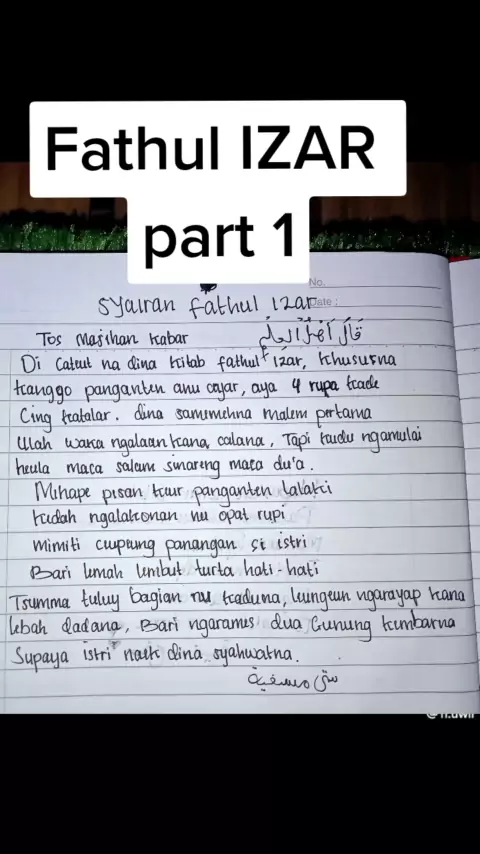 Fathul IZAR
part 1
No.
Date :
syairan fathul izar
Tos Masihan kabar قَالَ اَهْلُ الْعِلْمِ
Di Catut na dina kitab fathul izar, khususna
kanggo panganten anu anyar, aya 4 rupa kade
Cing katalar. dina samemehna malem pertama
Ulah waka ngalaan kana calana, Tapi kudu ngamulai
heula maca salam sinareng maca du'a.
Mihape pisan kur panganten lalaki
kudah ngalakonan nu opat rupi
mimiti cuptung panangan si istri
Bari lemah lembut turta hati-hati
Tsumma tuluy bagian nu kaduna, leungeun ngarayap kana
lebah dadana, Bari ngarames dua Gunung kembarna
Supaya istri naek dina syahwatna.